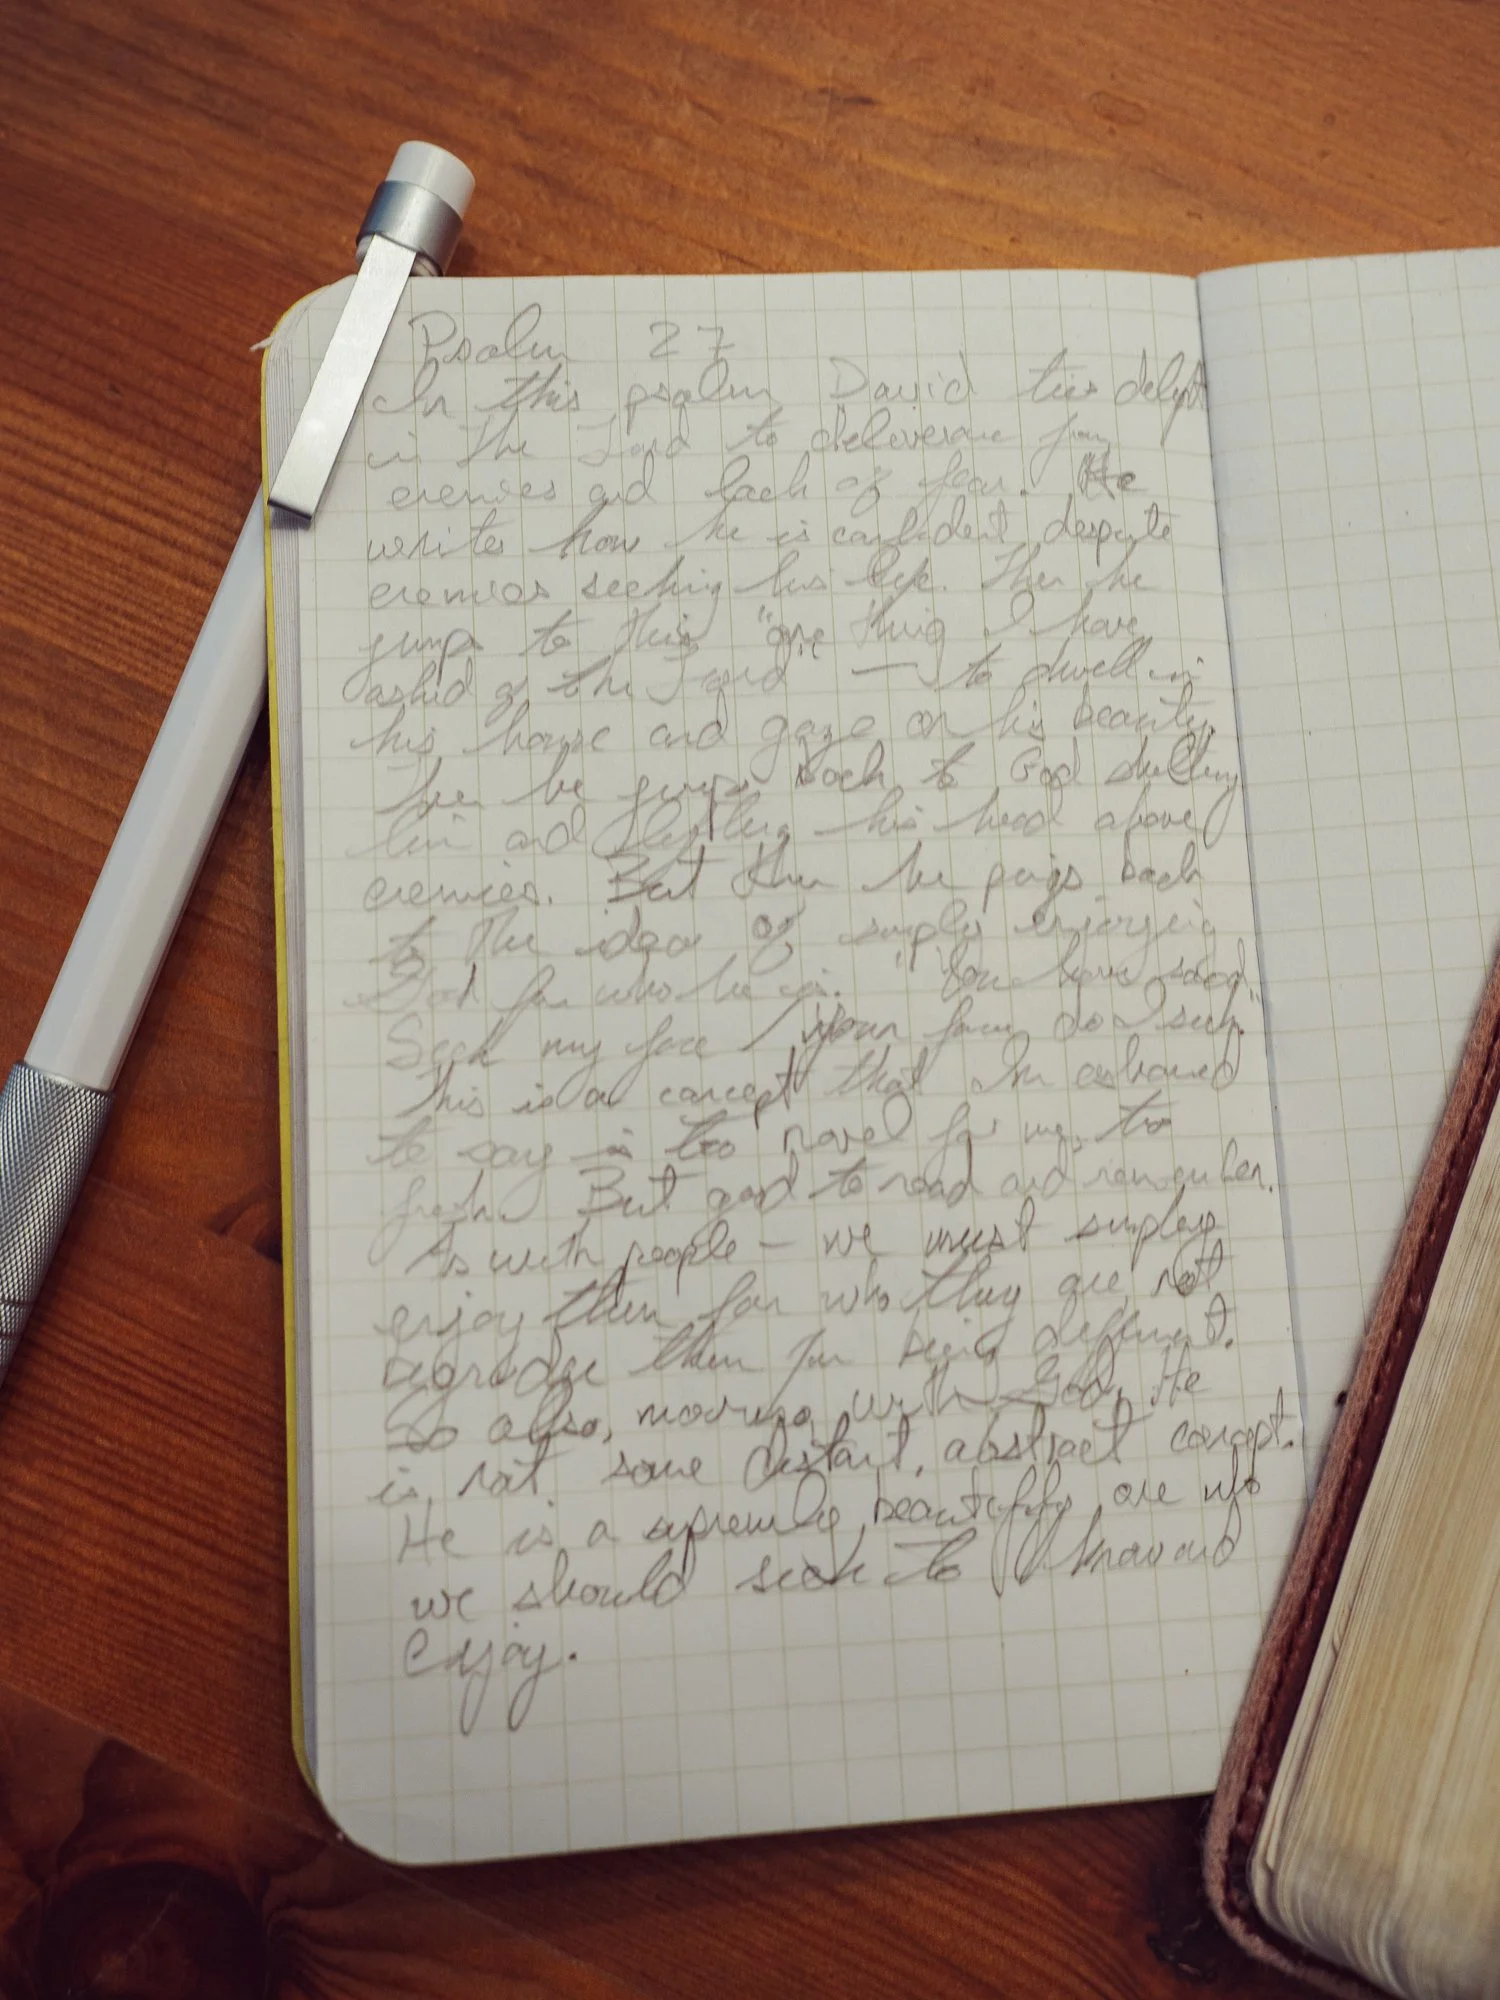 Psalm 27
In this psalm David ties delight
in the Lord to deliverance from
enemies and lack of fear. He
writes how he is confident despite
enemies seeking his life. Then he
jumps to this "one thing I have
asked of the Lord — to dwell in
his house and gaze on his beauty.
Then he jumps back to God sheltering
him and lifting his head above
enemies. But then he pings back
to the idea of simply enjoying
God for who he is. "You have said
Seek my face / your face do I seek."
This is a concept that I'm ashamed
to say is too novel for me, too
fresh. But good to read and remember.
As with people – we must simply
enjoy them for who they are, not
them for being different.
So also, moving with God. He
is not some distant, abstract concept.
He is a supremely beautiful one who
we should seek to know and
enjoy.